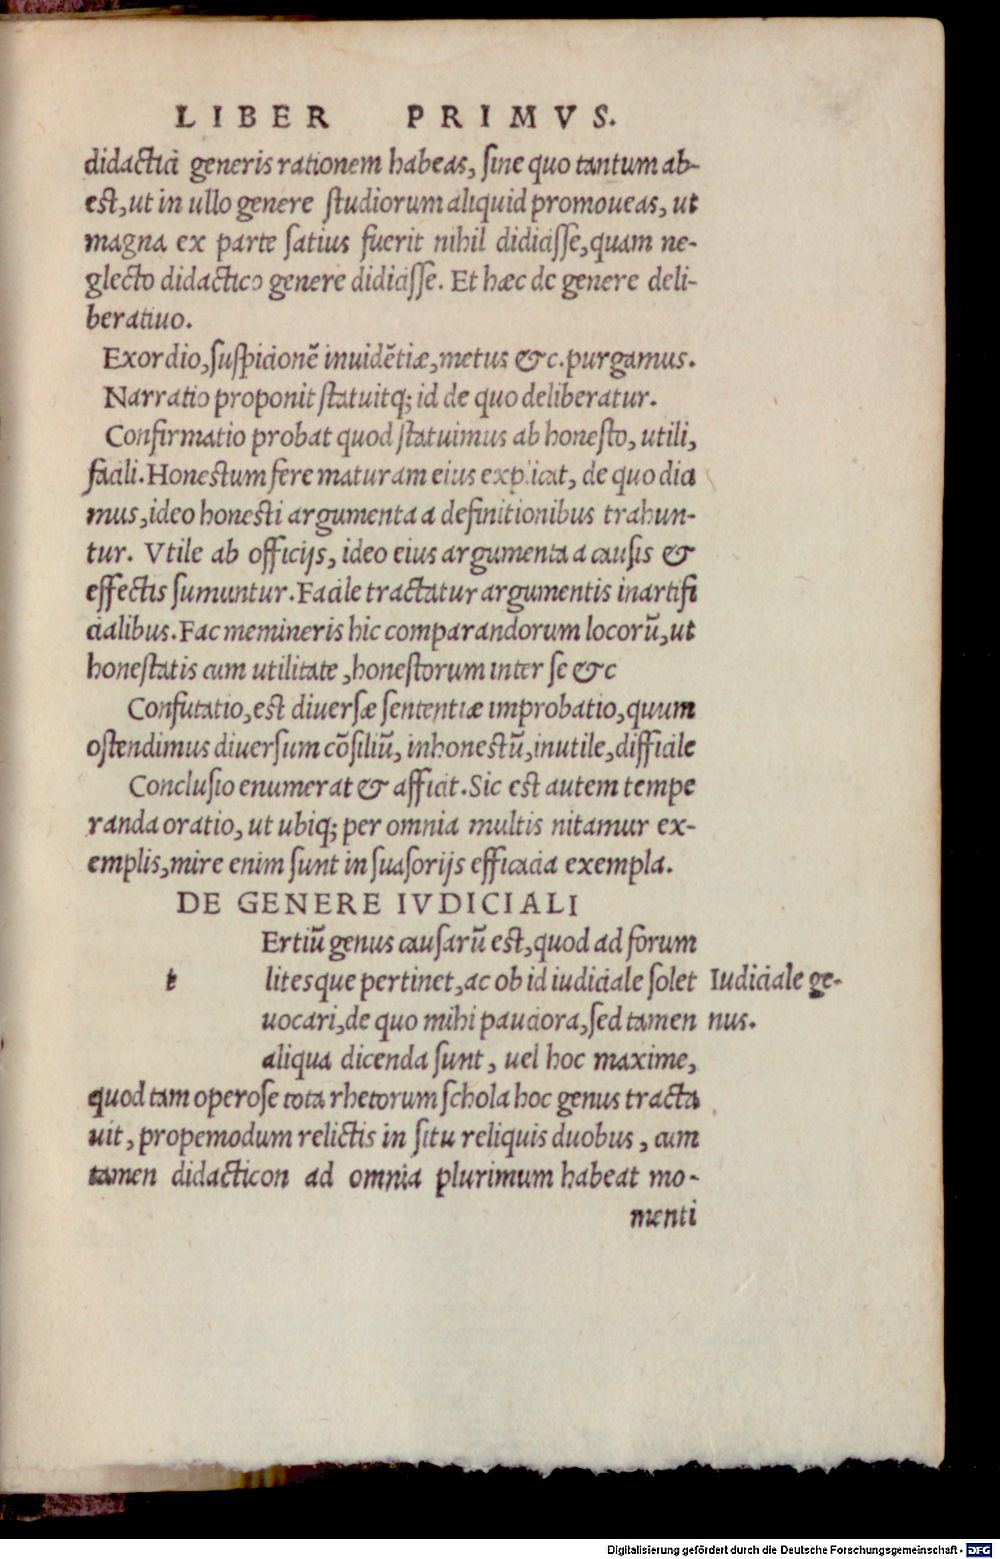 LIBER PRIMVS.
didactici generis rationem habeas, ſine quo tantum ab-
eſt, ut in ullo genere ſtudiorum aliquid promoueas, ut
magna ex parte ſatius fuerit nihil didiciſſe, quam ne-
glecto didactico genere didiciſſe. Et hæc de genere deli-
beratiuo.
Exordio, ſuſpicionẽ inuidẽtiæ, metus &c. purgamus.
Narratio proponit ſtatuitq; id de quo deliberatur.
Confirmatio probat quod ſtatuimus ab honeſto, utili,
facili. Honeſtum fere maturam eius explicat, de quo dici
mus, ideo honeſti argumenta a definitionibus trahun-
tur. Vtile ab officijs, ideo eius argumenta a cauſis &
effectis ſumuntur. Facile tractatur argumentis inartifi
cialibus. Fac memineris hic comparandorum locorũ, ut
honeſtatis cum utilitate, honeſtorum inter ſe &c
Confutatio, eſt diuerſæ ſententiæ improbatio, quum
oſtendimus diuerſum cõſiliũ, inhoneſtũ, inutile, difficile
Concluſio enumerat & afficit. Sic eſt autem tempe
randa oratio, ut ubiq; per omnia multis nitamur ex-
emplis, mire enim ſunt in ſuaſorijs efficacia exempla.
DE GENERE IVDICIALI
Ertiũ genus cauſarũ eſt, quod ad forum
t litesque pertinet, ac ob id iudiciale ſolet Iudiciale ge-
uocari, de quo mihi pauciora, ſed tamen nus.
aliqua dicenda ſunt, uel hoc maxime,
quod tam operoſe tota rhetorum ſchola hoc genus tracta
uit, propemodum relictis in ſitu reliquis duobus, cum
tamen didacticon ad omnia plurimum habeat mo-
menti
Digitalisierung gefördert durch die Deutsche Forschungsgemeinschaft - DFG